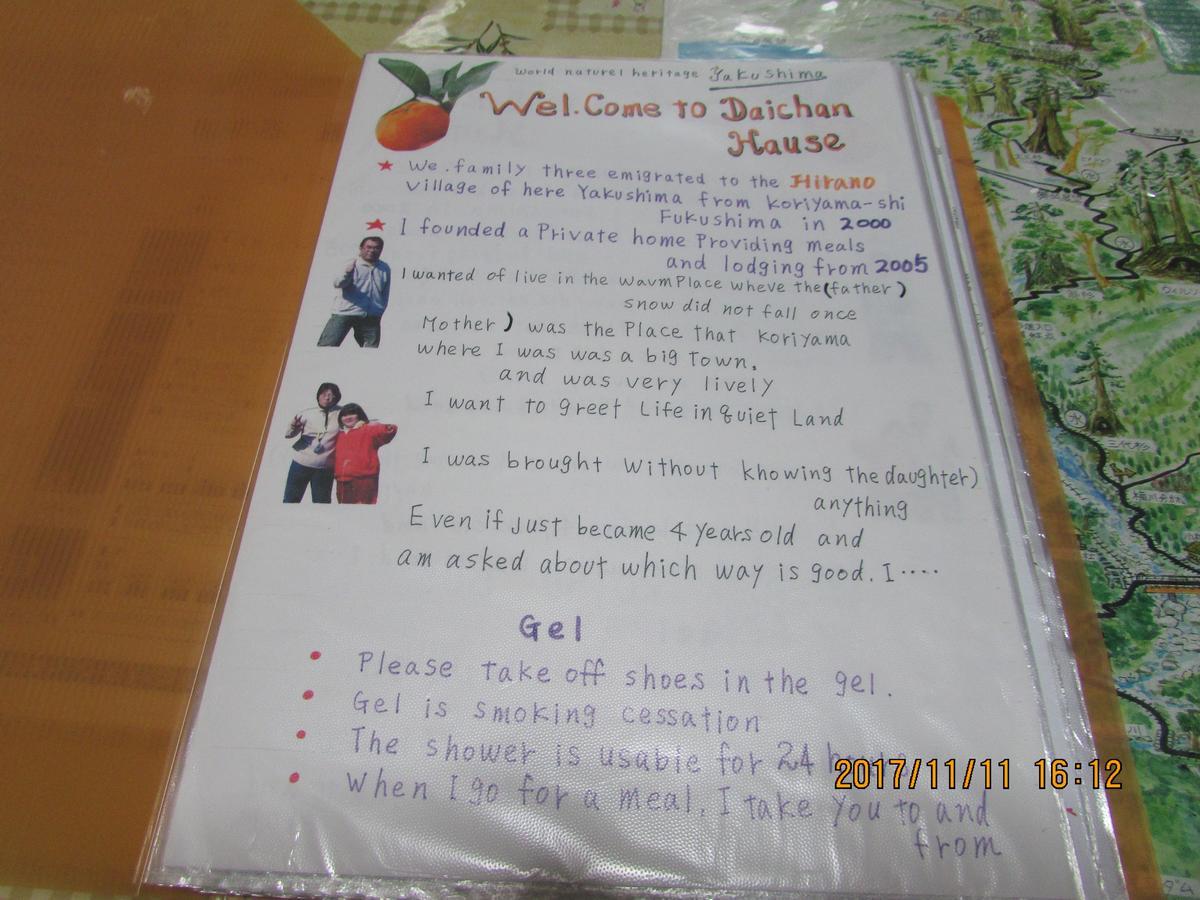 World naturel heritage Yakushima
Wel.Come to Daichan
Hause
★ We.family three emigrated to the Hirano
village of here Yakushima from koriyama-shi
Fukushima in 2000
★ I founded a Private home Providing meals
and lodging from 2005
I wanted of live in the wavm Place wheve the (father)
snow did not fall once
Mother) was the Place that koriyama
where I was was a big town.
and was very lively
I want to greet Life in quiet Land
I was brought without knowing the daughter)
anything
Even if just became 4 years old and
am asked about which way is good. I ‥‥
Gel
• Please take off shoes in the gel.
• Gel is smoking cessation
• The shower is usable for 24 hours
• When I go for a meal, I take you to and
from
2017/11/11 16:12
三代杉